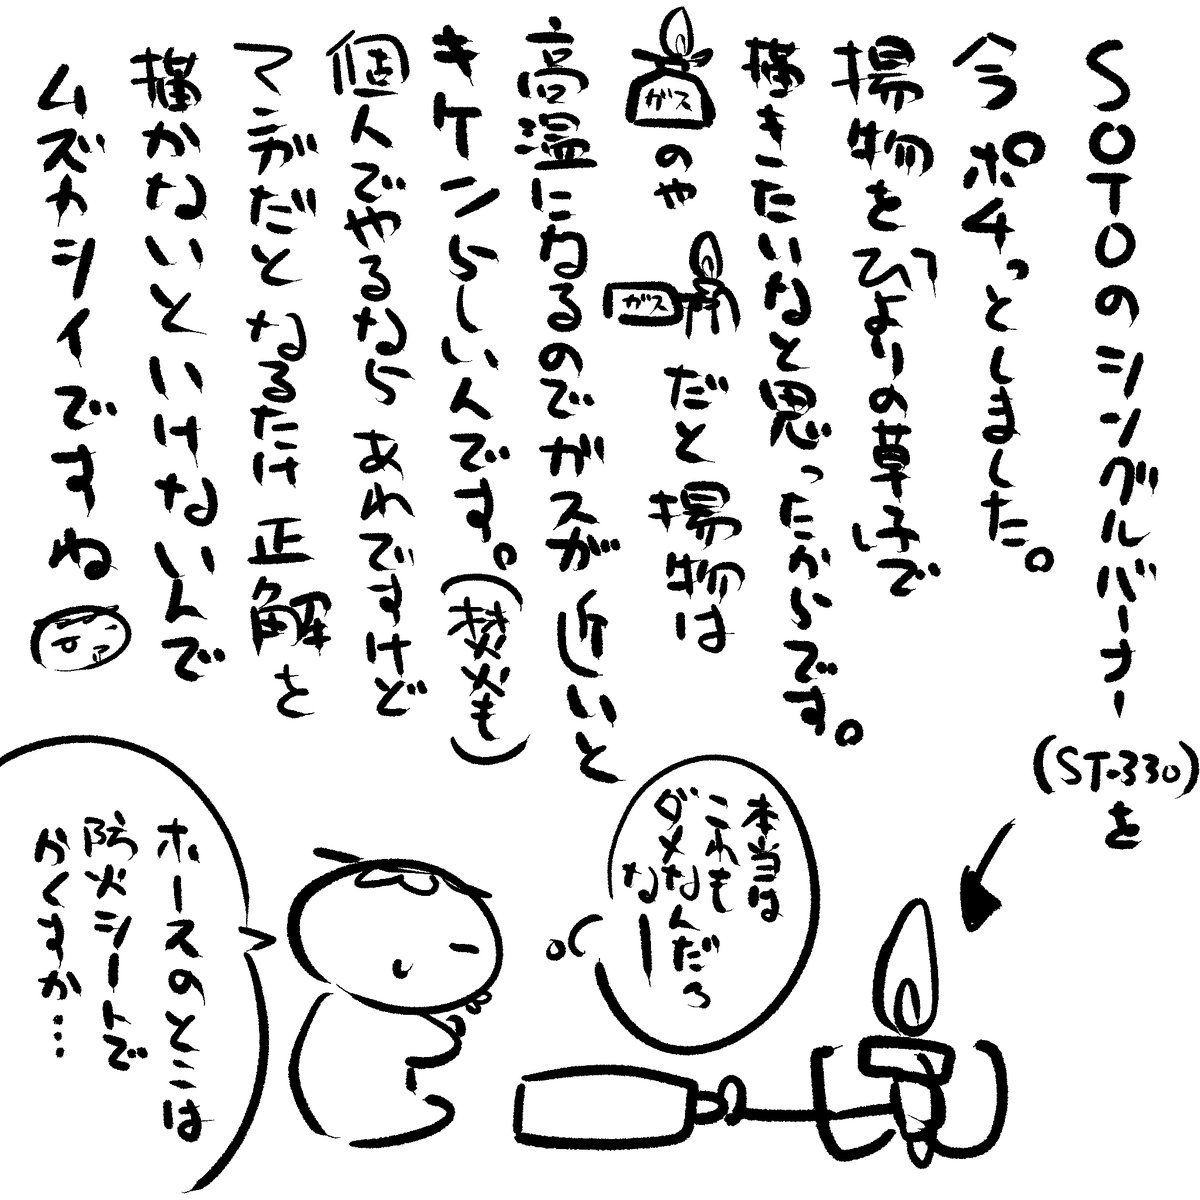 SOTOのシングルバーナー
(ST-330)を
今ポチっとしました。
揚物をひよりの草子で
描きたいなと思ったからです。
ガス
のや
ガス
だと揚物は
高温になるのでガスが近いと
キケンらしいんです。(焚火も)
個人でやるなら あれですけど
マンガだと なるたけ 正解を
描かないといけないんで
ムズカシイですね
本当は
これも
ダメなんだろ
なー
ホースのとこは
防火シートで
かくすか…